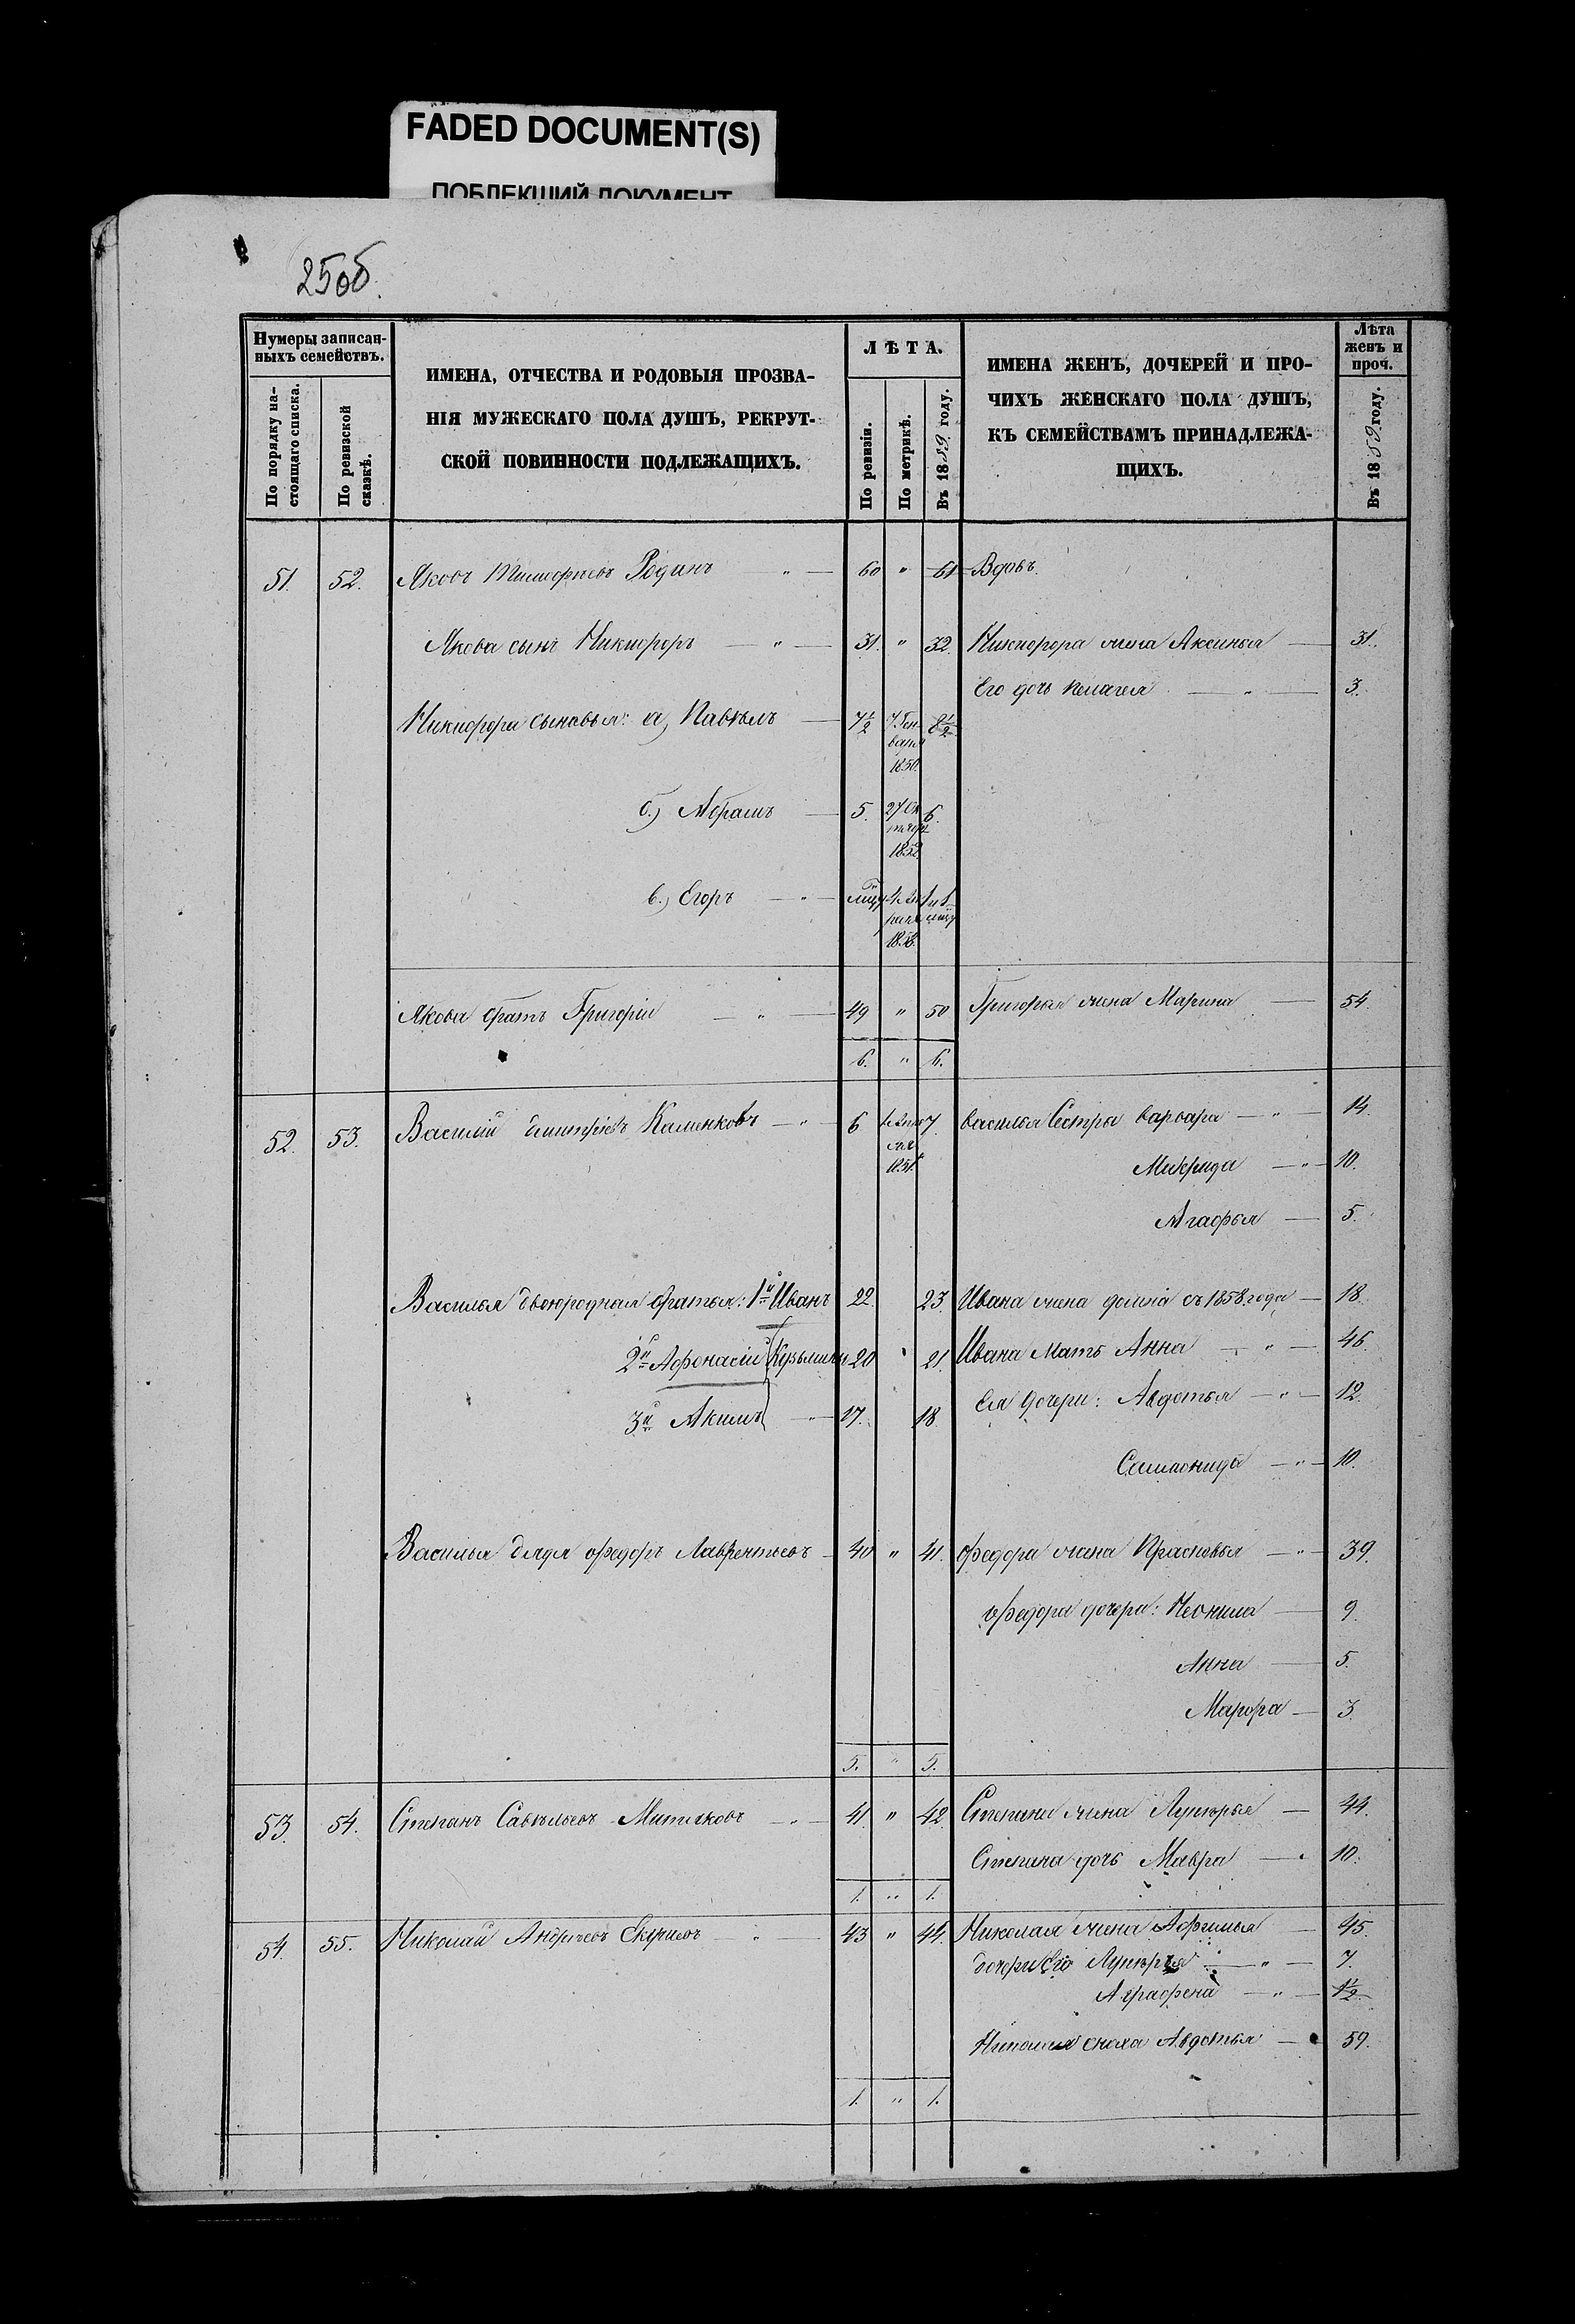 FADED DOCUMENT(S)
ПОБЛЕКШИЙ ДОКУМЕНТ
25об.
Нумеры записан-
ныхъ семействъ.
По порядку на-
стоящаго списка.
По ревизской
сказкѣ.
ИМЕНА, ОТЧЕСТВА И РОДОВЫЯ ПРОЗВА-
НІЯ МУЖЕСКАГО ПОЛА ДУШЪ, РЕКРУТ-
СКОЙ ПОВИННОСТИ ПОДЛЕЖАЩИХЪ.
ЛѢТА.
По ревизіи.
По метрикѣ.
Въ 1859 году.
ИМЕНА ЖЕНЪ, ДОЧЕРЕЙ И ПРО-
ЧИХЪ ЖЕНСКАГО ПОЛА ДУШЪ,
КЪ СЕМЕЙСТВАМЪ ПРИНАДЛЕЖА-
ЩИХЪ.
Лѣта
женъ и
проч.
Въ 1859 году.
51. 52. Яковъ Тимофѣевъ Родинъ — 60 " 61 Вдовъ.
Якова сынъ Никифоръ — " — 31. " 32. Никифора жена Аксинья — 31.
Его дочь Пелагея — " — 3.
Никифора сыновья: а, Павѣлъ — 7½ 7 Ген- 8½
варя
1850.
б.) Абрамъ — 5. 27 Ок 6.
тября
1852.
в.) Егоръ — " —
1858.
Якова братъ Григорій — " — 49 " 50 Григорья жена Марина — 54
6. " 6.
52. 53. Василій Дмитріевъ Каменковъ — " — 6 7. Василья Сестра Варвара — " — 14.
1851.
Макрида — " — 10.
Агафья — 5.
Василья двоюродныя братья: 1й Иванъ 22. 23. Ивана жена съ 1858 года — 18.
2й Афонасій Кузьмины 20 21. Ивана Мать Анна — " — 46.
3й Акимъ — 17. 18. Ея дочери: Авдотья — " — 12.
Саламонида — " — 10.
Василья дядя Федоръ Лаврентьевъ — 40 " 41. Федора жена Прасковья — " — 39.
Федора дочери: Неонила — 9.
Анна — 5.
Марфа — 3.
5. " 5.
53. 54. Степанъ Савѣльевъ — " — 41 " 42 Степана жена Лукерья — 44.
Степана дочь Мавра — 10.
1. " 1.
54. 55. Николай Андрѣевъ — " — 43 " 44. Николая жена Афимья — 45.
дочери Его Лукерья — " — 7.
Аграфена — " — 1½
Николая сноха Авдотья — 59.
1. " 1.